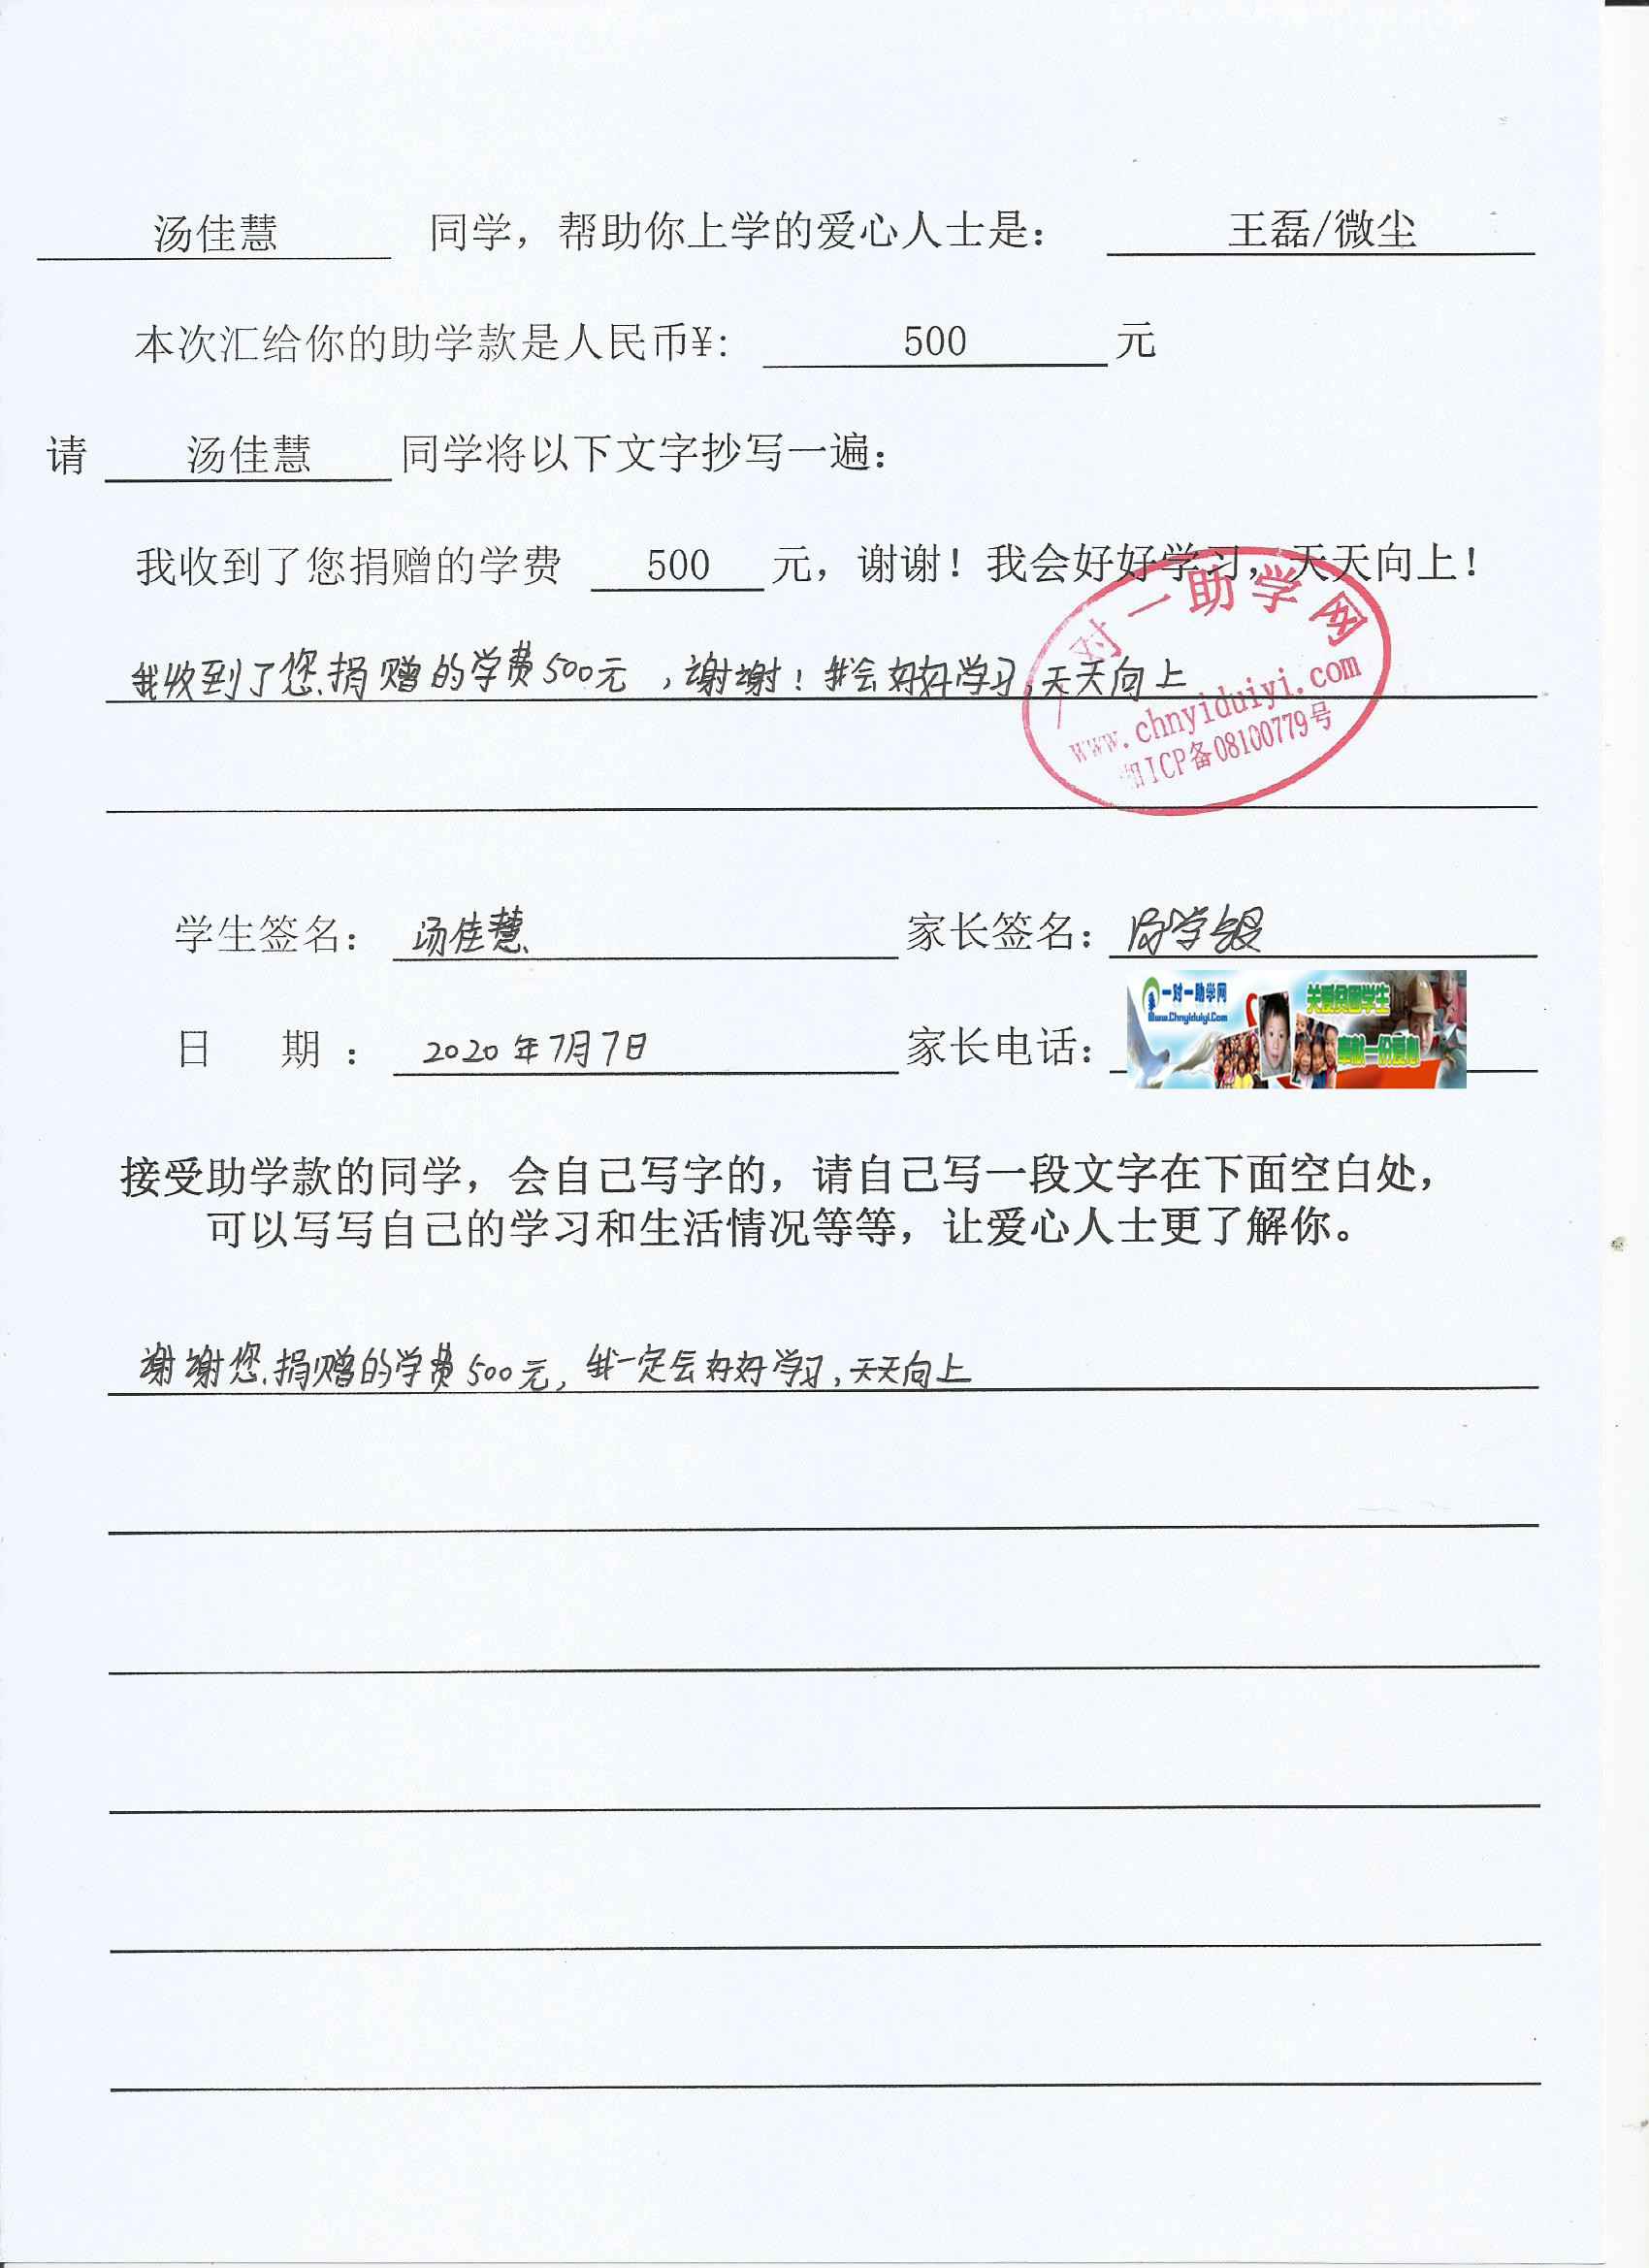 汤佳慧 同学，帮助你上学的爱心人士是： 王磊/微尘
本次汇给你的助学款是人民币¥： 500 元
请 汤佳慧 同学将以下文字抄写一遍：
我收到了您捐赠的学费 500 元，谢谢！我会好好学习，天天向上！
我收到了您捐赠的学费500元，谢谢！我会好好学习，天天向上
一对一助学网
www.chnyiduiyi.com
湘ICP备08100779号
学生签名： 汤佳慧 家长签名：
一对一助学网
Www.Chnyiduiyi.Com
关爱贫困学生
奉献一份爱心
日 期： 2020年7月7日 家长电话：
接受助学款的同学，会自己写字的，请自己写一段文字在下面空白处，
可以写写自己的学习和生活情况等等，让爱心人士更了解你。
谢谢您捐赠的学费500元，我一定会好好学习，天天向上